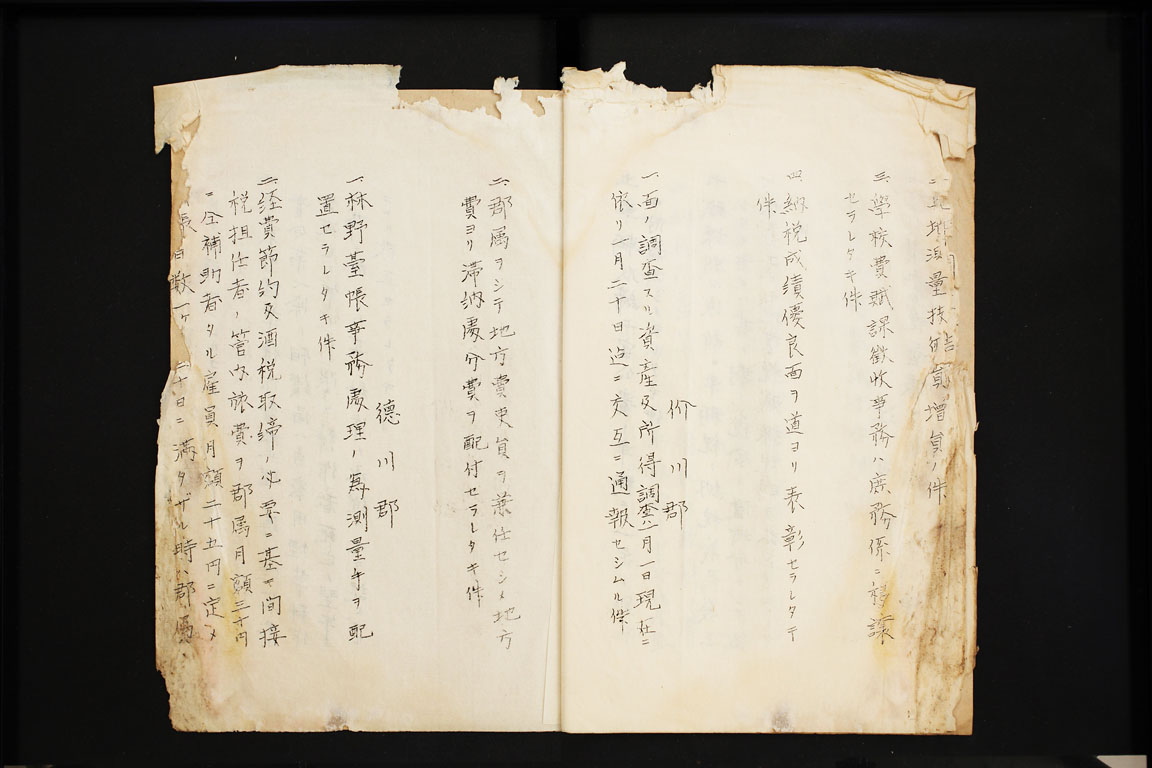 測量技術員増員ノ件
三、學校費賦課徴收事務ハ庶務係ニ移課
セラレタキ件
四、納税成績優良面ヲ道ヨリ表彰セラレタキ
件
价川郡
一、面ノ調査スル資産及所得調査ハ一月一日現在ニ
依リ一月二十日迄ニ交互ニ通報セシムル件
二、郡属ヲシテ地方費吏員ヲ兼任セシメ地方
費ヨリ滞納處分費ヲ配付セラレタキ件
德川郡
一、林野臺帳事務處理ノ為測量手ヲ配
置セラレタキ件
二、経費節約及酒税取締ノ必要ニ基キ間接
税担任者ノ管内旅費ヲ郡属月額三十円
ニ全補助者タル雇員月額二十五円ニ定メ
張日数一ヶ 二十日ニ満タザル時ハ郡属